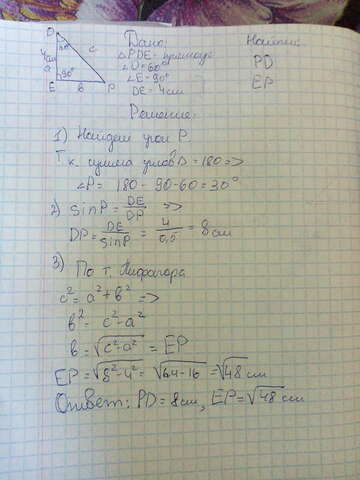 D
60°
4см
a
c
90°
E
b
P
Дано:
△PDE - прямоуг.
∠D=60°
∠E=90°
DE = 4см
Найти:
PD
EP
Решение:
1) Найдем угол P.
Т.к. сумма углов △ = 180 =>
∠P = 180 - 90 - 60 = 30°
2) sinP = DE/DP =>
DP = DE/sinP = 4/0,5 = 8см
3) По т. Пифагора
c² = a² + b² =>
b² = c² - a²
b = √(c² - a²) = EP
EP = √(8² - 4²) = √(64 - 16) = √48 см
Ответ: PD = 8см, EP = √48 см